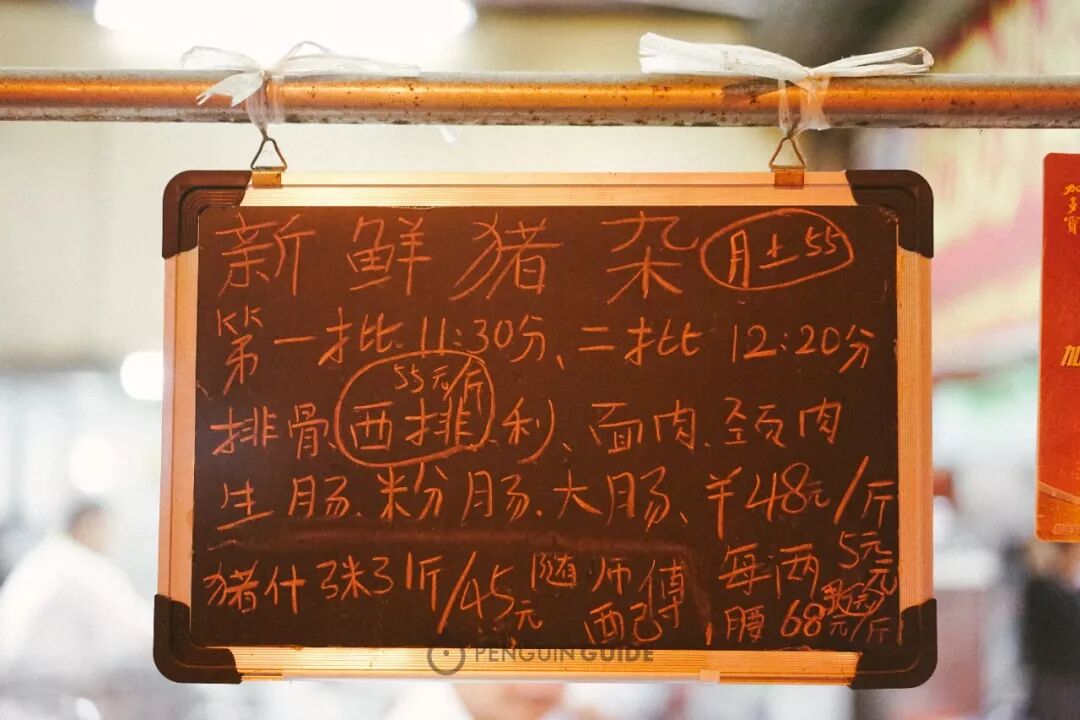 新鲜猪杂 月土55
KK
第一批11:30分、二批12:20分
55元/斤
排骨、西排、利、面肉、颈肉
生肠、粉肠、大肠、¥48元/斤
猪什 1斤/45元 随师傅配 每两5元
腰68元/斤
PENGUIN GUIDE
加多寶
加